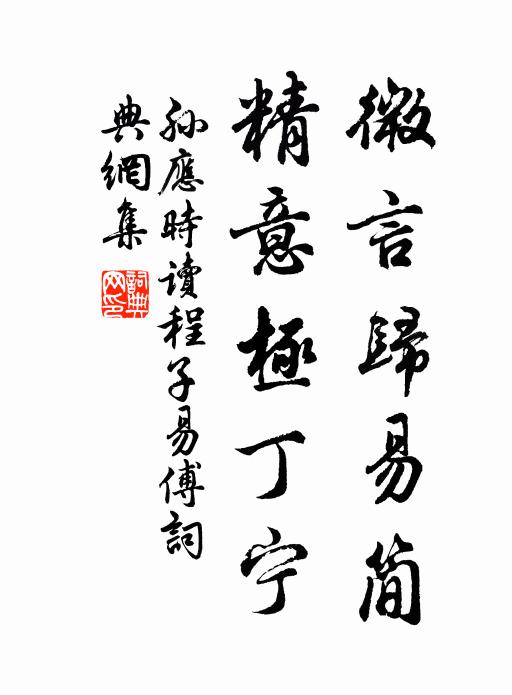 微言歸易简
精意極丁宁
孙應時讀程子易傅詞
典網集
詞典网印